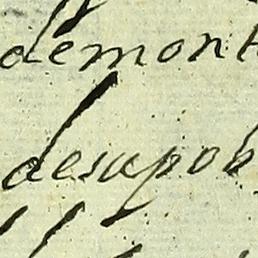 demont
desupob